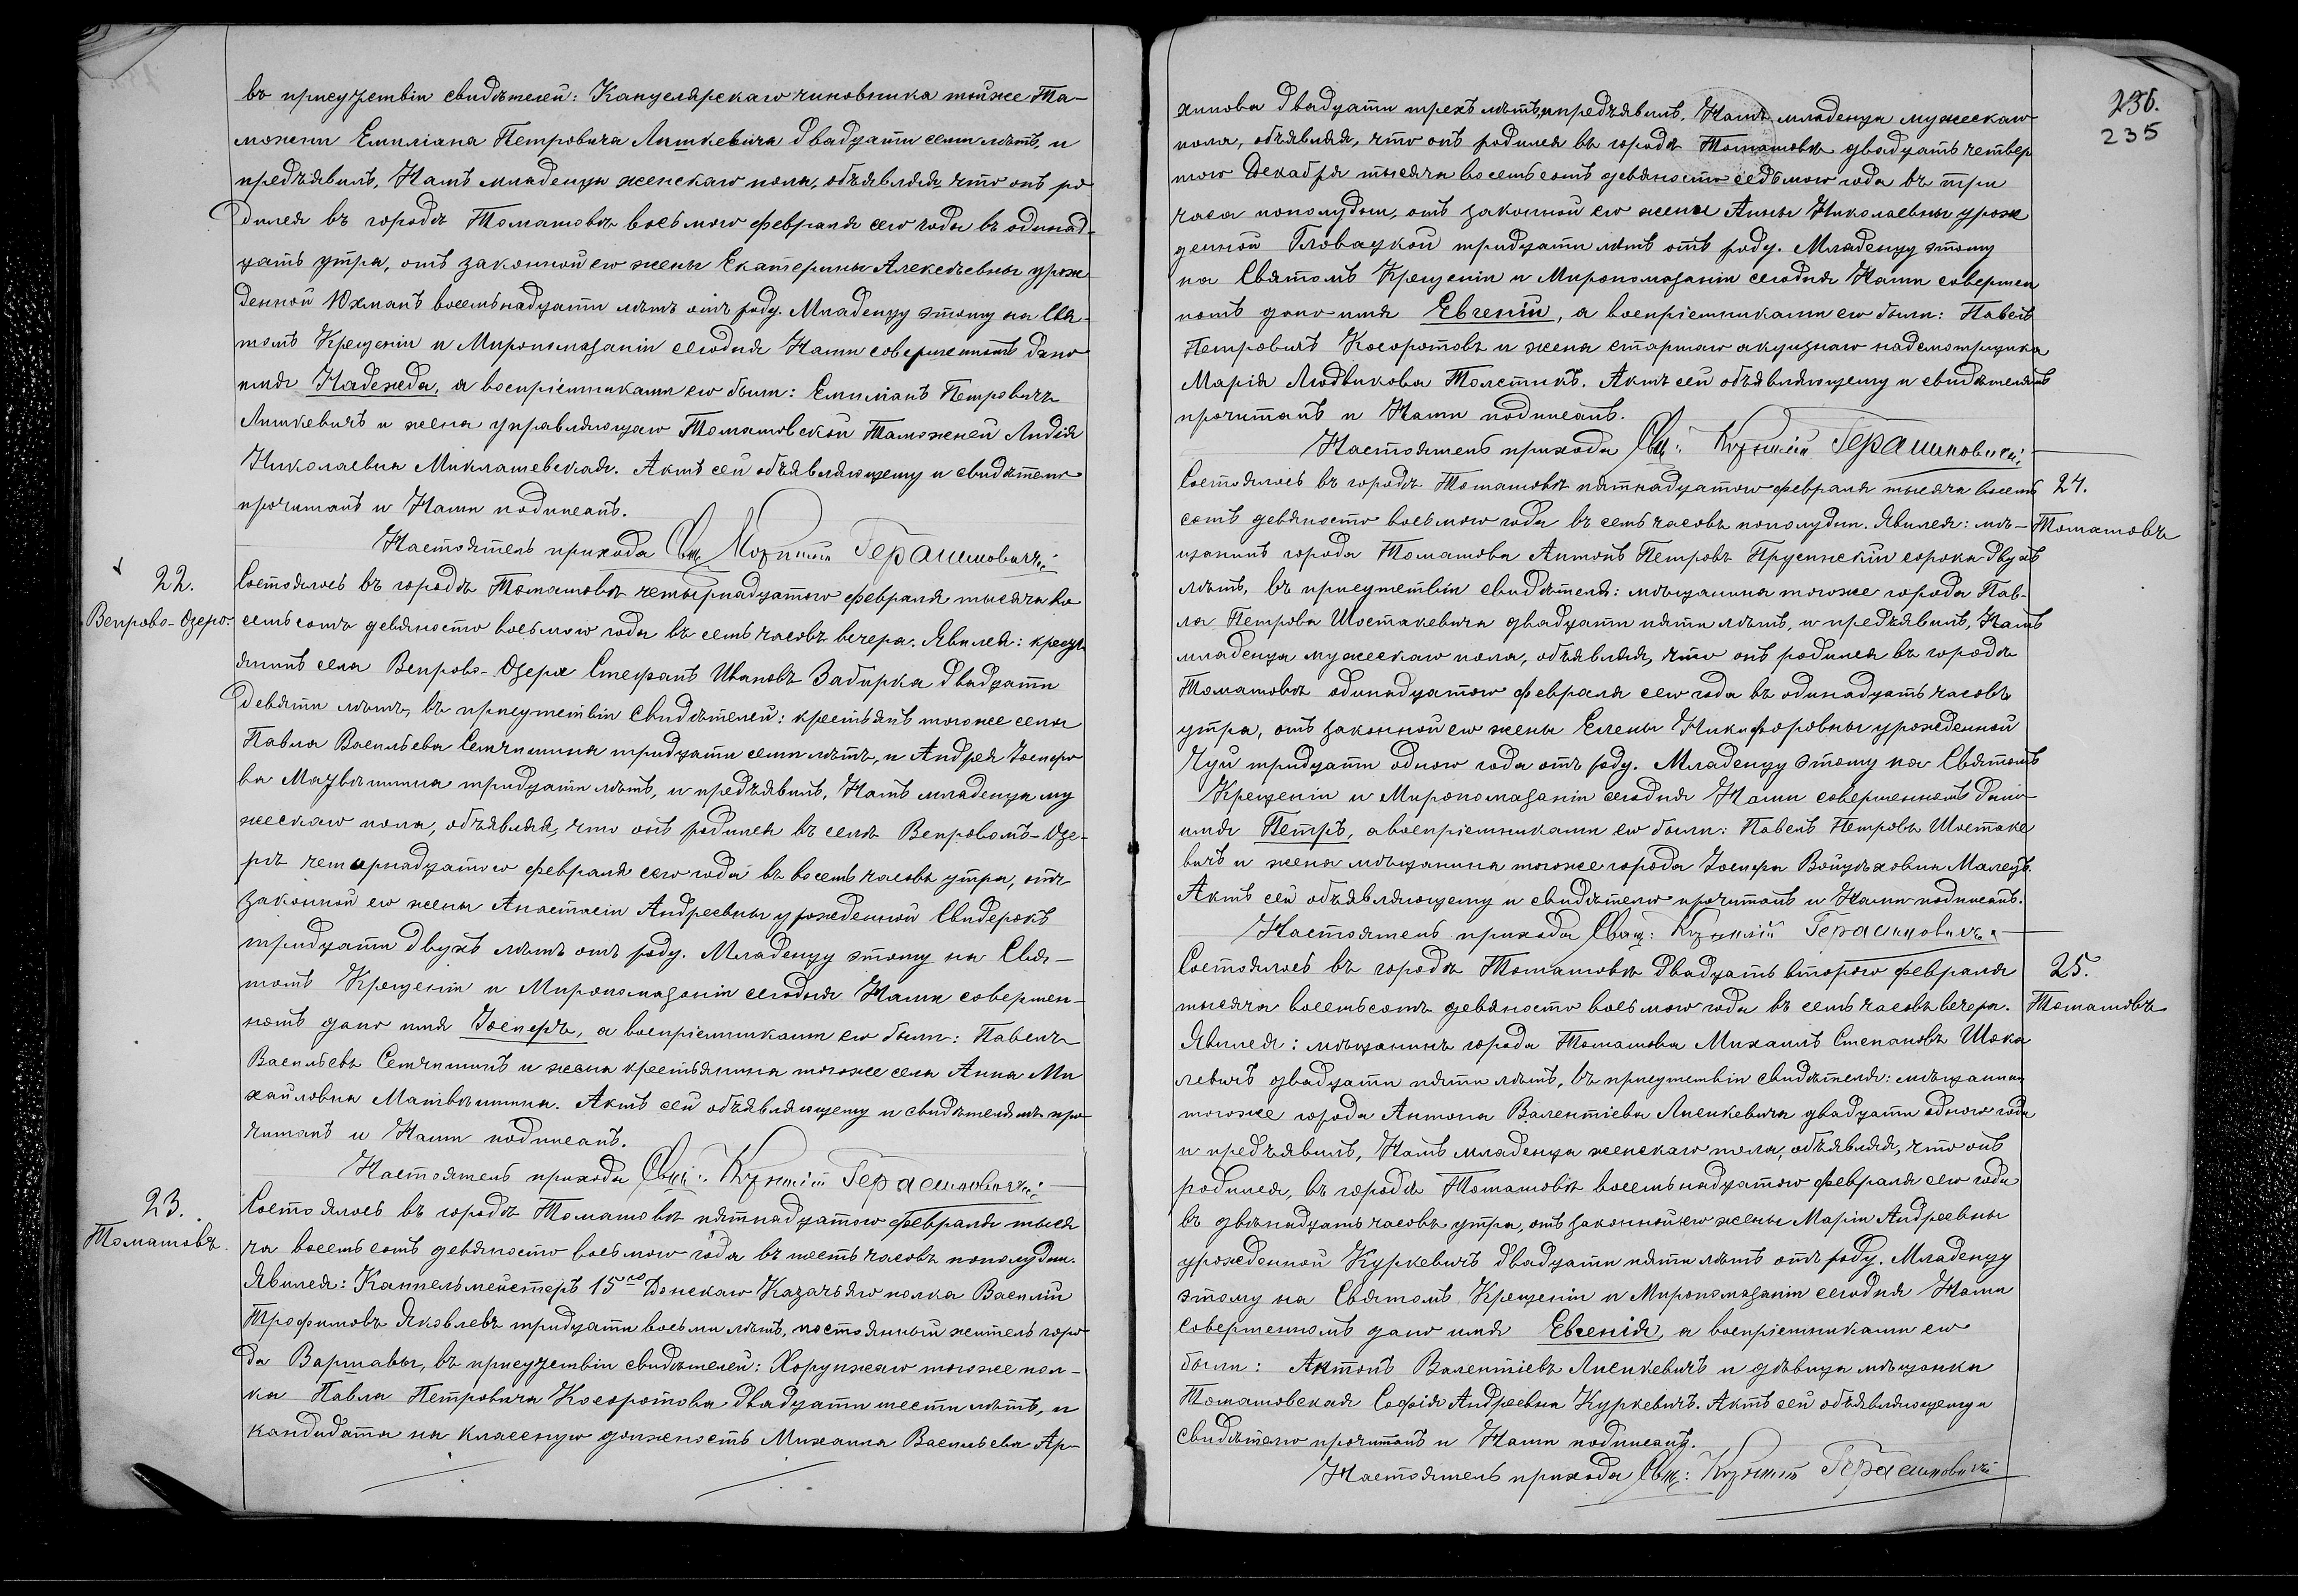 въ присутствіи свидѣтелей: Канцелярскаго чиновника тойже Та-
можни Емиліана Петровича Лишкевича двадцати семи лѣтъ, и
предъявилъ, Намъ младенца женскаго пола, объявляя что онъ ро
дился въ городѣ Томашовѣ восьмого февраля сего года въ одинад-
цать утра, отъ законной его жены Екатерины Алексѣевны урож-
денной Юхманъ восемьнадцати лѣтъ отъ роду. Младенцу этому на Свя-
томъ Крещеніи и Миропомазаніи сегодня Нами совершенномъ дано
имя Надежда, а воспріемниками его были: Емиліанъ Петровичъ
Лишкевичъ и жена управляющаго Томашовской Таможней Лидія
Николаевна Миклашевская. Актъ сей объявляющему и свидѣтелю
прочитанъ и Нами подписанъ.
Настоятель прихода Свщ: Герасимовичъ
22.
Вепрово-Озеро.
Состоялось въ городѣ Томашовѣ четырнадцатого февраля тысяча во
семьсотъ девяносто восьмого года въ семь часовъ вечера. Явился: крест
янинъ села Вепрово-Озера Стефанъ Ивановъ Забирка двадцати
девяти лѣтъ, въ присутствіи свидѣтелей: крестьянъ тогоже села
Павла Васильева Семчишина тридцати семи лѣтъ, и Андрея Іосифо
ва тридцати лѣтъ, и предъявилъ, Намъ младенца му
жескаго пола, объявляя, что онъ родился въ селѣ Вепровомъ-Озе-
рѣ четырнадцатого февраля сего года въ восемь часовъ утра, отъ
законной его жены Анастасіи Андреевны урожденной Свидерокъ
тридцати двухъ лѣтъ отъ роду. Младенцу этому на Свя-
томъ Крещеніи и Миропомазаніи сегодня Нами совершен-
номъ дано имя Іосифъ, а воспріемниками его были: Павелъ
Васильевъ Семчишинъ и жена крестьянина тогоже села Анна Ми
хайловна Матвѣишина. Актъ сей объявляющему и свидѣтелямъ про-
читанъ и Нами подписанъ.
Настоятель прихода Свщ: Герасимовичъ
23.
Томашовъ.
Состоялось въ городѣ Томашовѣ пятнадцатого февраля тыся
ча восемьсотъ девяносто восьмого года въ шесть часовъ пополудни.
Явился: Капельмейстеръ 15го Донскаго Казачьяго полка Василій
Трофимовъ Яковлевъ тридцати восьми лѣтъ, постоянный житель горо
да Варшавы, въ присутствіи свидѣтелей: Хорунжаго тогоже пол-
ка Павла Петровича Косоротова двадцати шести лѣтъ, и
кандидата на классную должность Михаила Васильева Ар-
236.
235
хипова двадцати трехъ лѣтъ, и предъявилъ, Намъ младенца мужескаго
пола, объявляя, что онъ родился въ городѣ Томашовѣ двадцать четвер
того Декабря тысяча восемьсотъ девяносто седьмого года въ три
часа пополудни, отъ законной его жены Анны Николаевны урож
денной Гловацкой тридцати лѣтъ отъ роду. Младенцу этому
на Святомъ Крещеніи и Миропомазаніи сегодня Нами совершен
номъ дано имя Евгеній, а воспріемниками его были: Павелъ
Петровичъ Косоротовъ и жена старшаго акцизнаго надсмотрщика
Марія Людвикова Толстикъ. Актъ сей объявляющему и свидѣтелямъ
прочитанъ и Нами подписанъ.
Настоятель прихода Свщ: Герасимовичъ
24.
Томашовъ
Состоялось въ городѣ Томашовѣ пятнадцатого февраля тысяча восемь
сотъ девяносто восьмого года въ семь часовъ пополудни. Явился: мѣ-
щанинъ города Томашова Антонъ Петровъ сорока двухъ
лѣтъ, въ присутствіи свидѣтеля: мѣщанина тогоже города Пав-
ла Петрова Шостакевича двадцати пяти лѣтъ, и предъявилъ, Намъ
младенца мужескаго пола, объявляя, что онъ родился въ городѣ
Томашовѣ одинадцатого февраля сего года въ одинадцать часовъ
утра, отъ законной его жены Елены Никифоровны урожденной
Чуй тридцати одного года отъ роду. Младенцу этому на Святомъ
Крещеніи и Миропомазаніи сегодня Нами совершенномъ дано
имя Петръ, а воспріемниками его были: Павелъ Петровъ Шостаке
вичъ и жена мѣщанина тогоже города Іосифа Войцѣховна Малецъ.
Актъ сей объявляющему и свидѣтелю прочитанъ и Нами подписанъ.
Настоятель прихода Свящ: Герасимовичъ
25.
Томашовъ
Состоялось въ городѣ Томашовѣ двадцать второго февраля
тысяча восемьсотъ девяносто восьмого года въ семь часовъ вечера.
Явился: мѣщанинъ города Томашова Михаилъ Степановъ Шока
левичъ двадцати пяти лѣтъ, въ присутствіи свидѣтеля: мѣщанина
тогоже города Антона Валентіева Лисикевича двадцати одного года
и предъявилъ, Намъ младенца женскаго пола, объявляя, что онъ
родился, въ городѣ Томашовѣ восемьнадцатого февраля сего года
въ двѣнадцать часовъ утра, отъ законной его жены Маріи Андреевны
урожденной Куркевичъ двадцати пяти лѣтъ отъ роду. Младенцу
этому на Святомъ Крещеніи и Миропомазаніи сегодня Нами
совершенномъ дано имя Евгенія, а воспріемниками его
были: Антонъ Валентіевъ Лисикевичъ и дѣвица мѣщанка
Томашовская Софія Андреевна Куркевичъ. Актъ сей объявляющему и
свидѣтелю прочитанъ и Нами подписанъ.
Настоятель прихода Свщ: Герасимовичъ